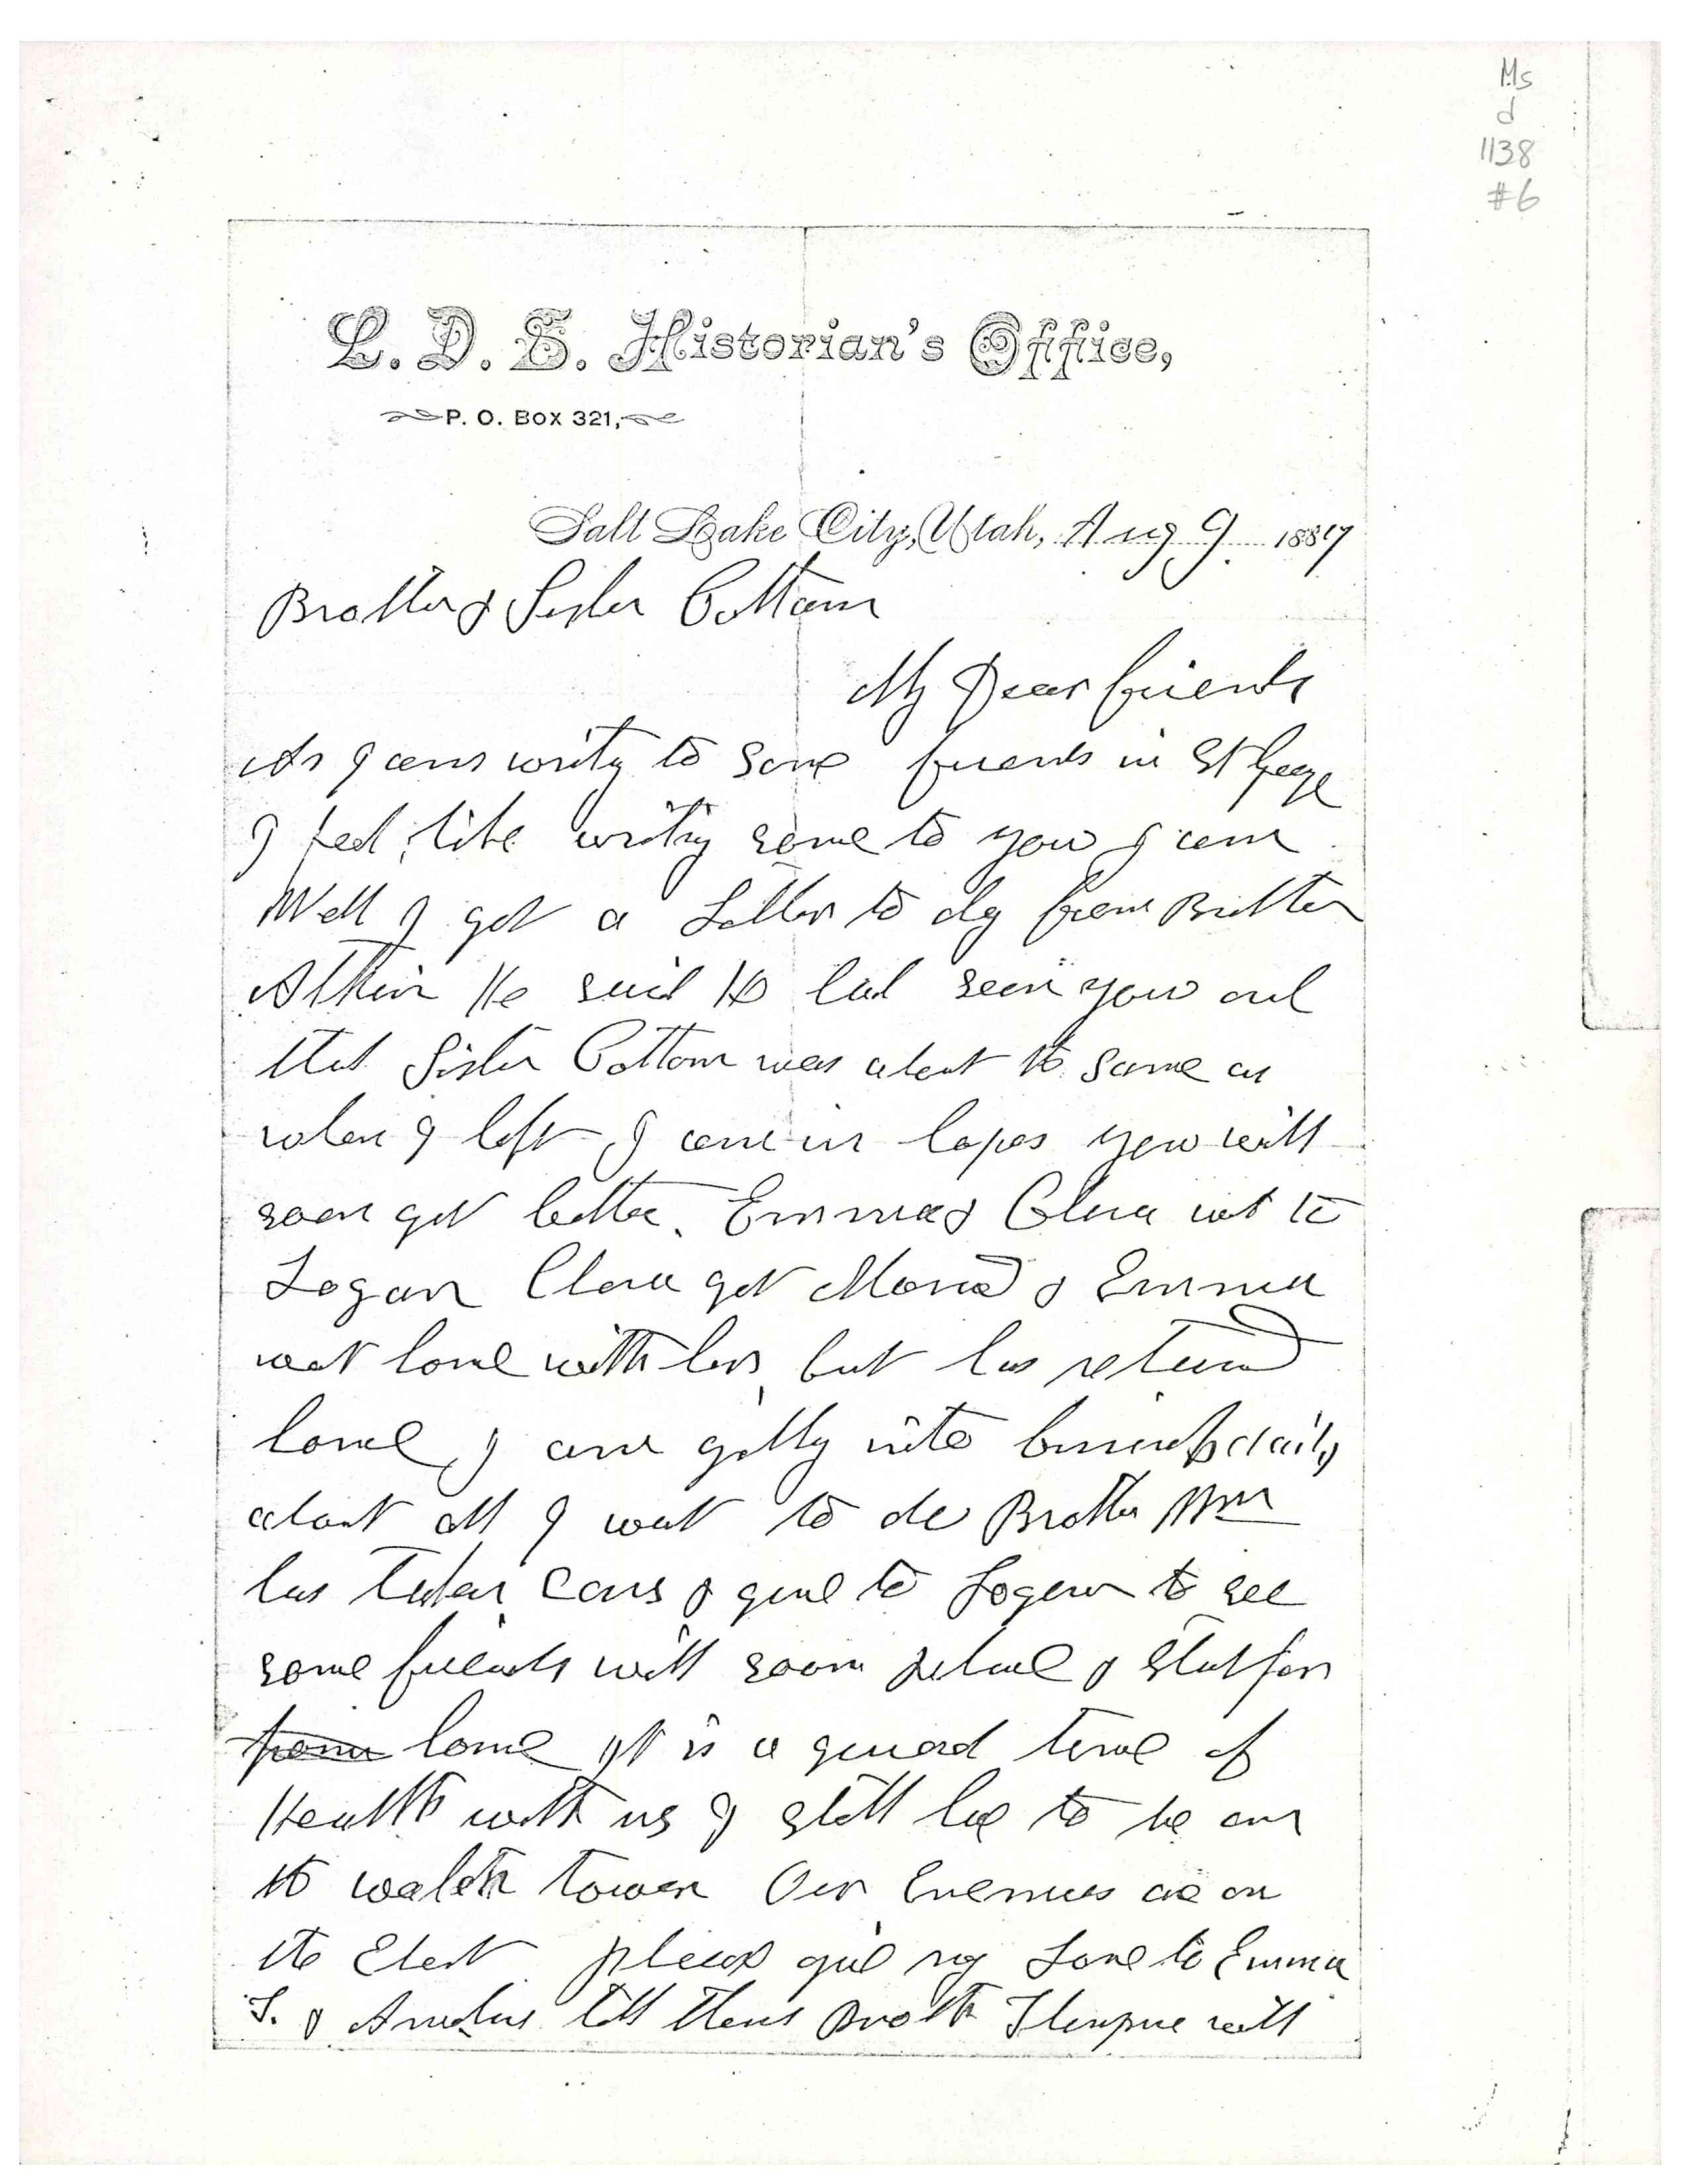 Ms
d
1138
#6
L. D. S. Historian's Office,
P. O. BOX 321,
Salt Lake City, Utah, Aug 9 1887
Brother & Sister Cottam
My Dear friends
As I am writing to some friends in St George
I feel like writing some to you I am
Well I got a Letter to day from Brother
Atkin He said He had seen you and
that Sister Cottam was about the same as
when I left I am in hopes you will
soon get better. Emma & Clara went to
Logan Clara got Married & Emma
went home with her but has returned
home, I am getting into business daily
about all I want to do Brother Wm
has taken cars & gone to Logan to see
some friends will soon return & Start for
from home It is a general time of
Health with us I still have to be on
the watch tower Our Enemies are on
the Elert please give my Love to Emma
S. & tell them Brother Thompson will